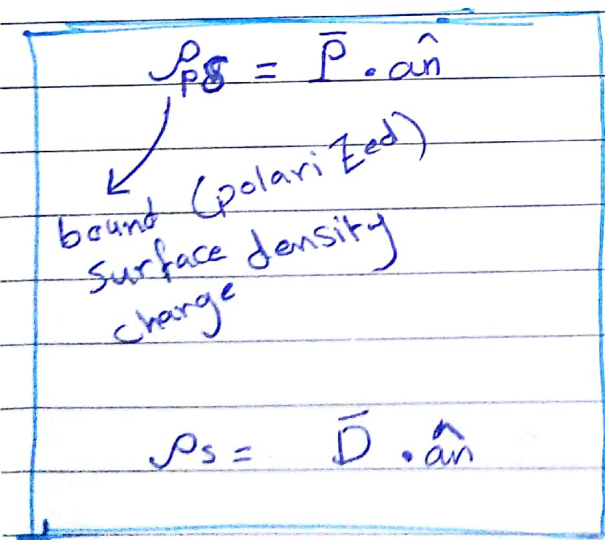 ρps = P̄ . ân
bound (polarized)
surface density
charge
ρs = D̄ . ân